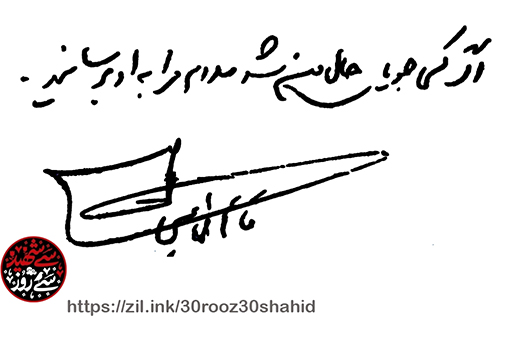 اگر کسی جویای حال من شد سلام مرا به او برسانید.
سی شهید
سی روز
https://zil.ink/30rooz30shahid